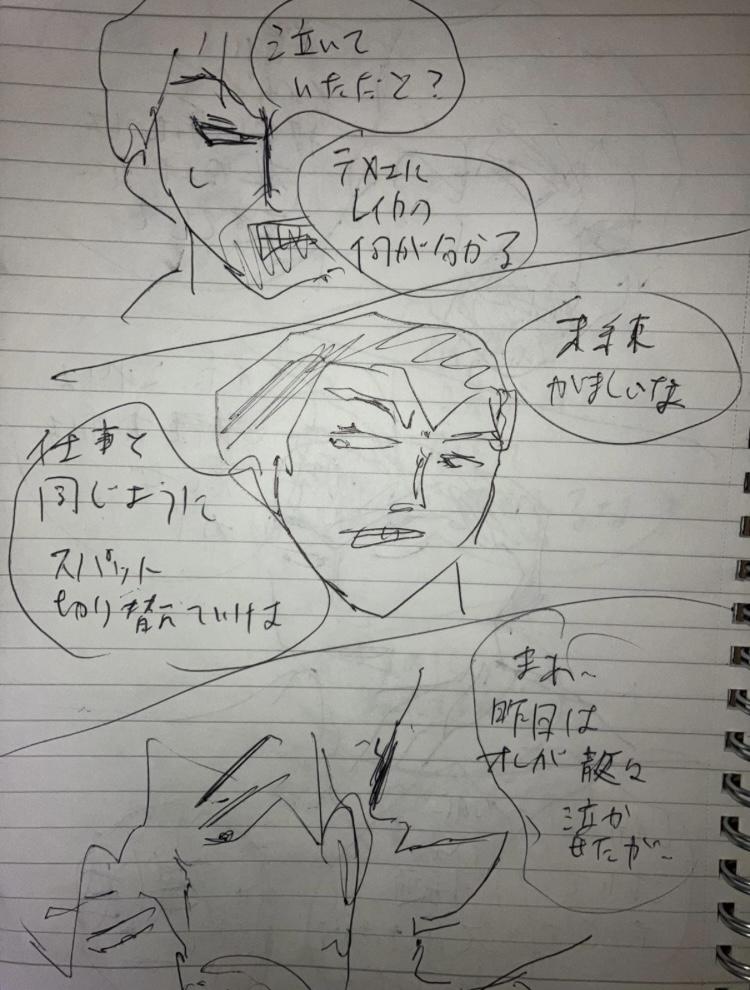 泣いて
いただと?
テメエに
レイカの
何が分かる
未練
がましいな
仕事と
同じように
スパット
切り替えていけよ
まあ~
昨日は
オレが散々
泣か
せたが~